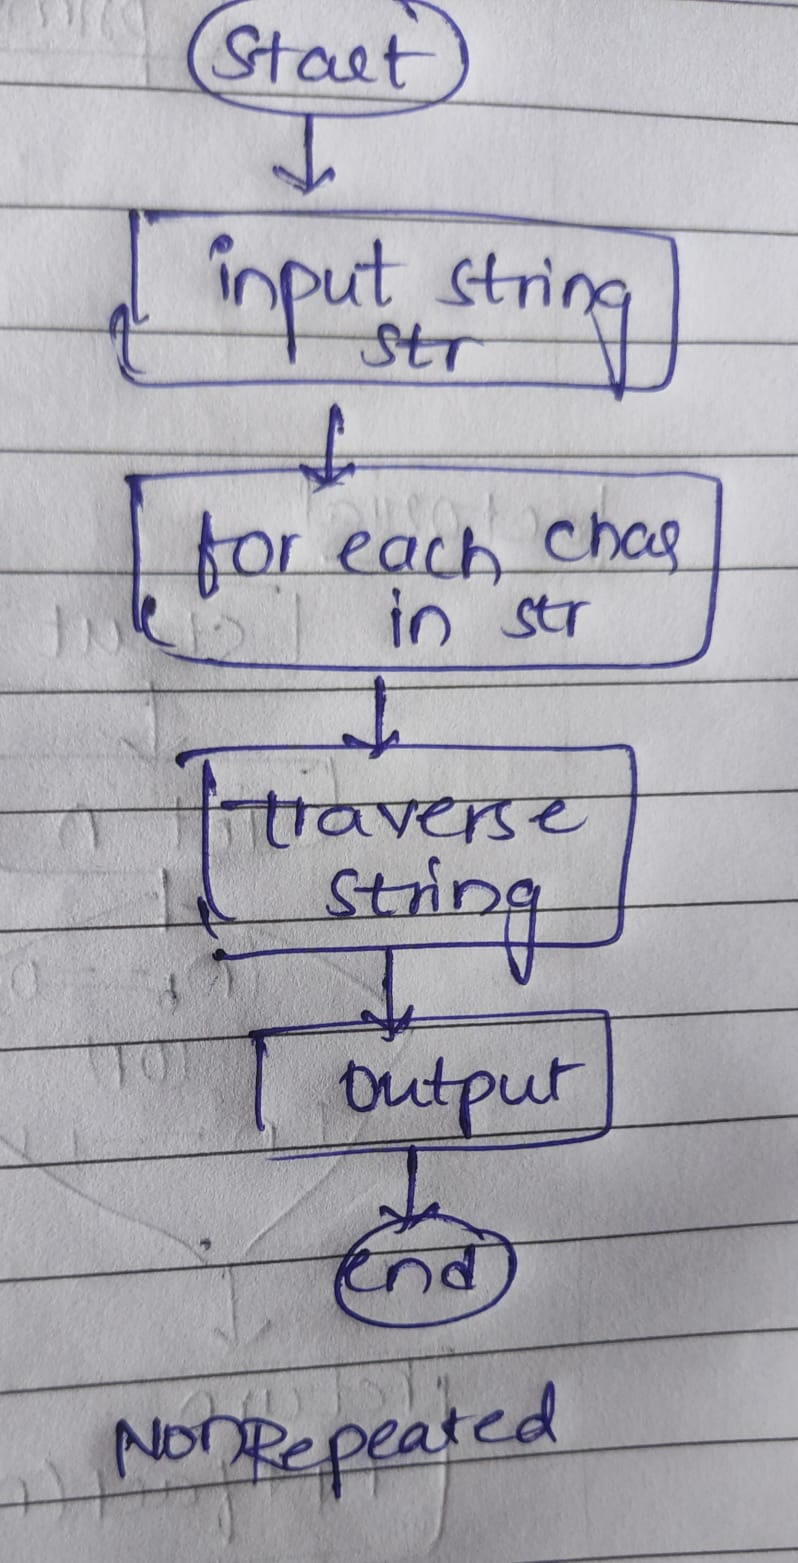 Start
input string
str
for each char
in str
traverse
string
output
end
NonRepeated